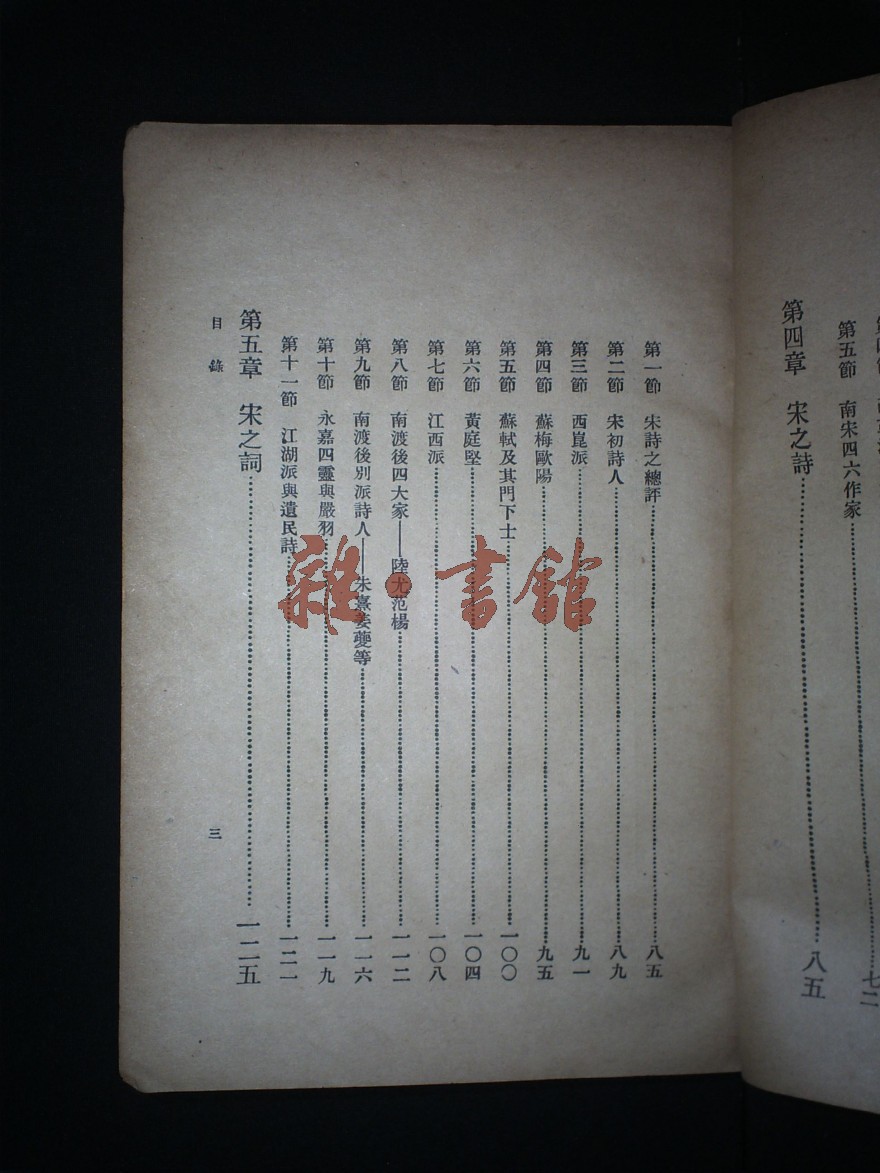 第五節　南宋四六作家……七二
第四章　宋之詩……八五
第一節　宋詩之總評……八五
第二節　宋初詩人……八九
第三節　西崑派……九一
第四節　蘇梅歐陽……九五
第五節　蘇軾及其門下士……一〇〇
第六節　黃庭堅……一〇四
第七節　江西派……一〇八
第八節　南渡後四大家——陸尤范楊……一一二
第九節　南渡後別派詩人——朱熹姜夔等……一一六
第十節　永嘉四靈與嚴羽……一一九
第十一節　江湖派與遺民詩……一二一
第五章　宋之詞……一二五
目錄　三
雜·書館